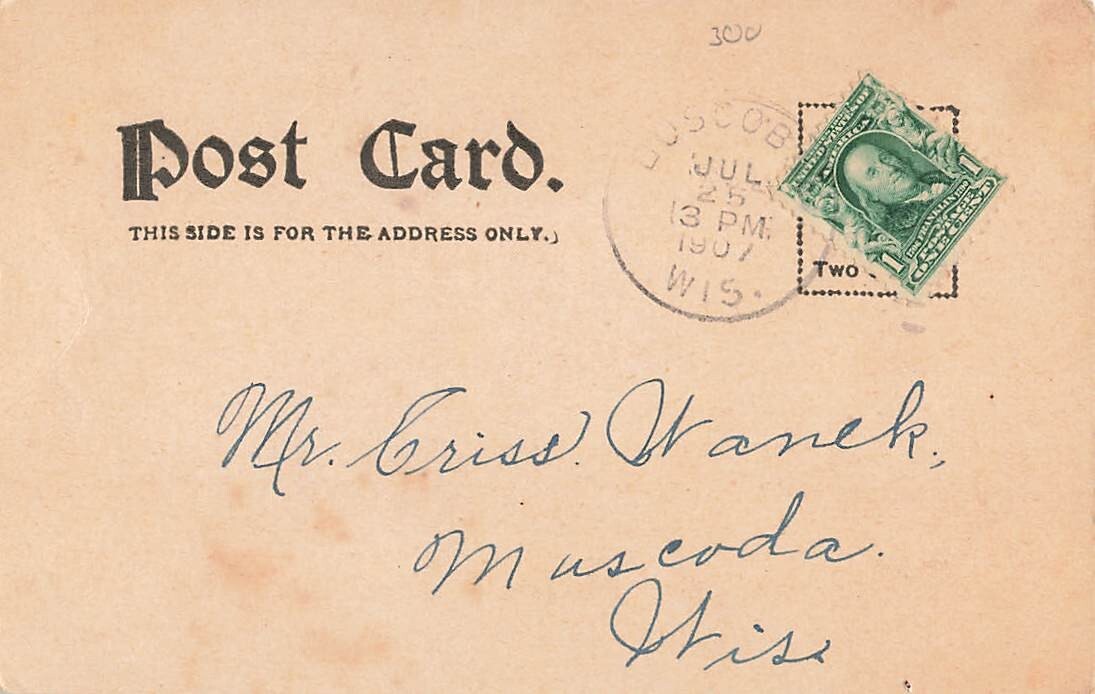 300
Post Card.
THIS SIDE IS FOR THE ADDRESS ONLY.
BOSCOB
JUL
25
3 PM
1907
WIS.
UNITED STATES OF
AMERICA
1 1
FRANKLIN
POSTAGE
ONE CENT
Two
Mr. Criss. Wanek,
Muscoda.
Wis